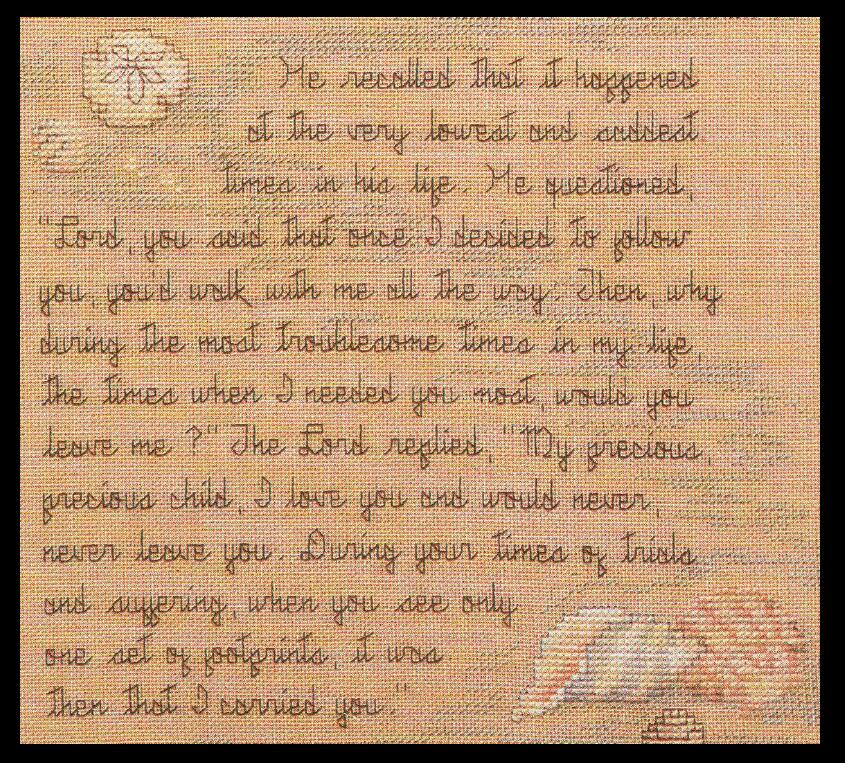 He recalled that it happened
at the very lowest and saddest
times in his life. He questioned,
"Lord, you said that once I decided to follow
you, you'd walk with me all the way. Then, why
during the most troublesome times in my life,
the times when I needed you most, would you
leave me ?" The Lord replied, "My precious,
precious child, I love you and would never,
never leave you. During your times of trials
and suffering, when you see only
one set of footprints, it was
then that I carried you."